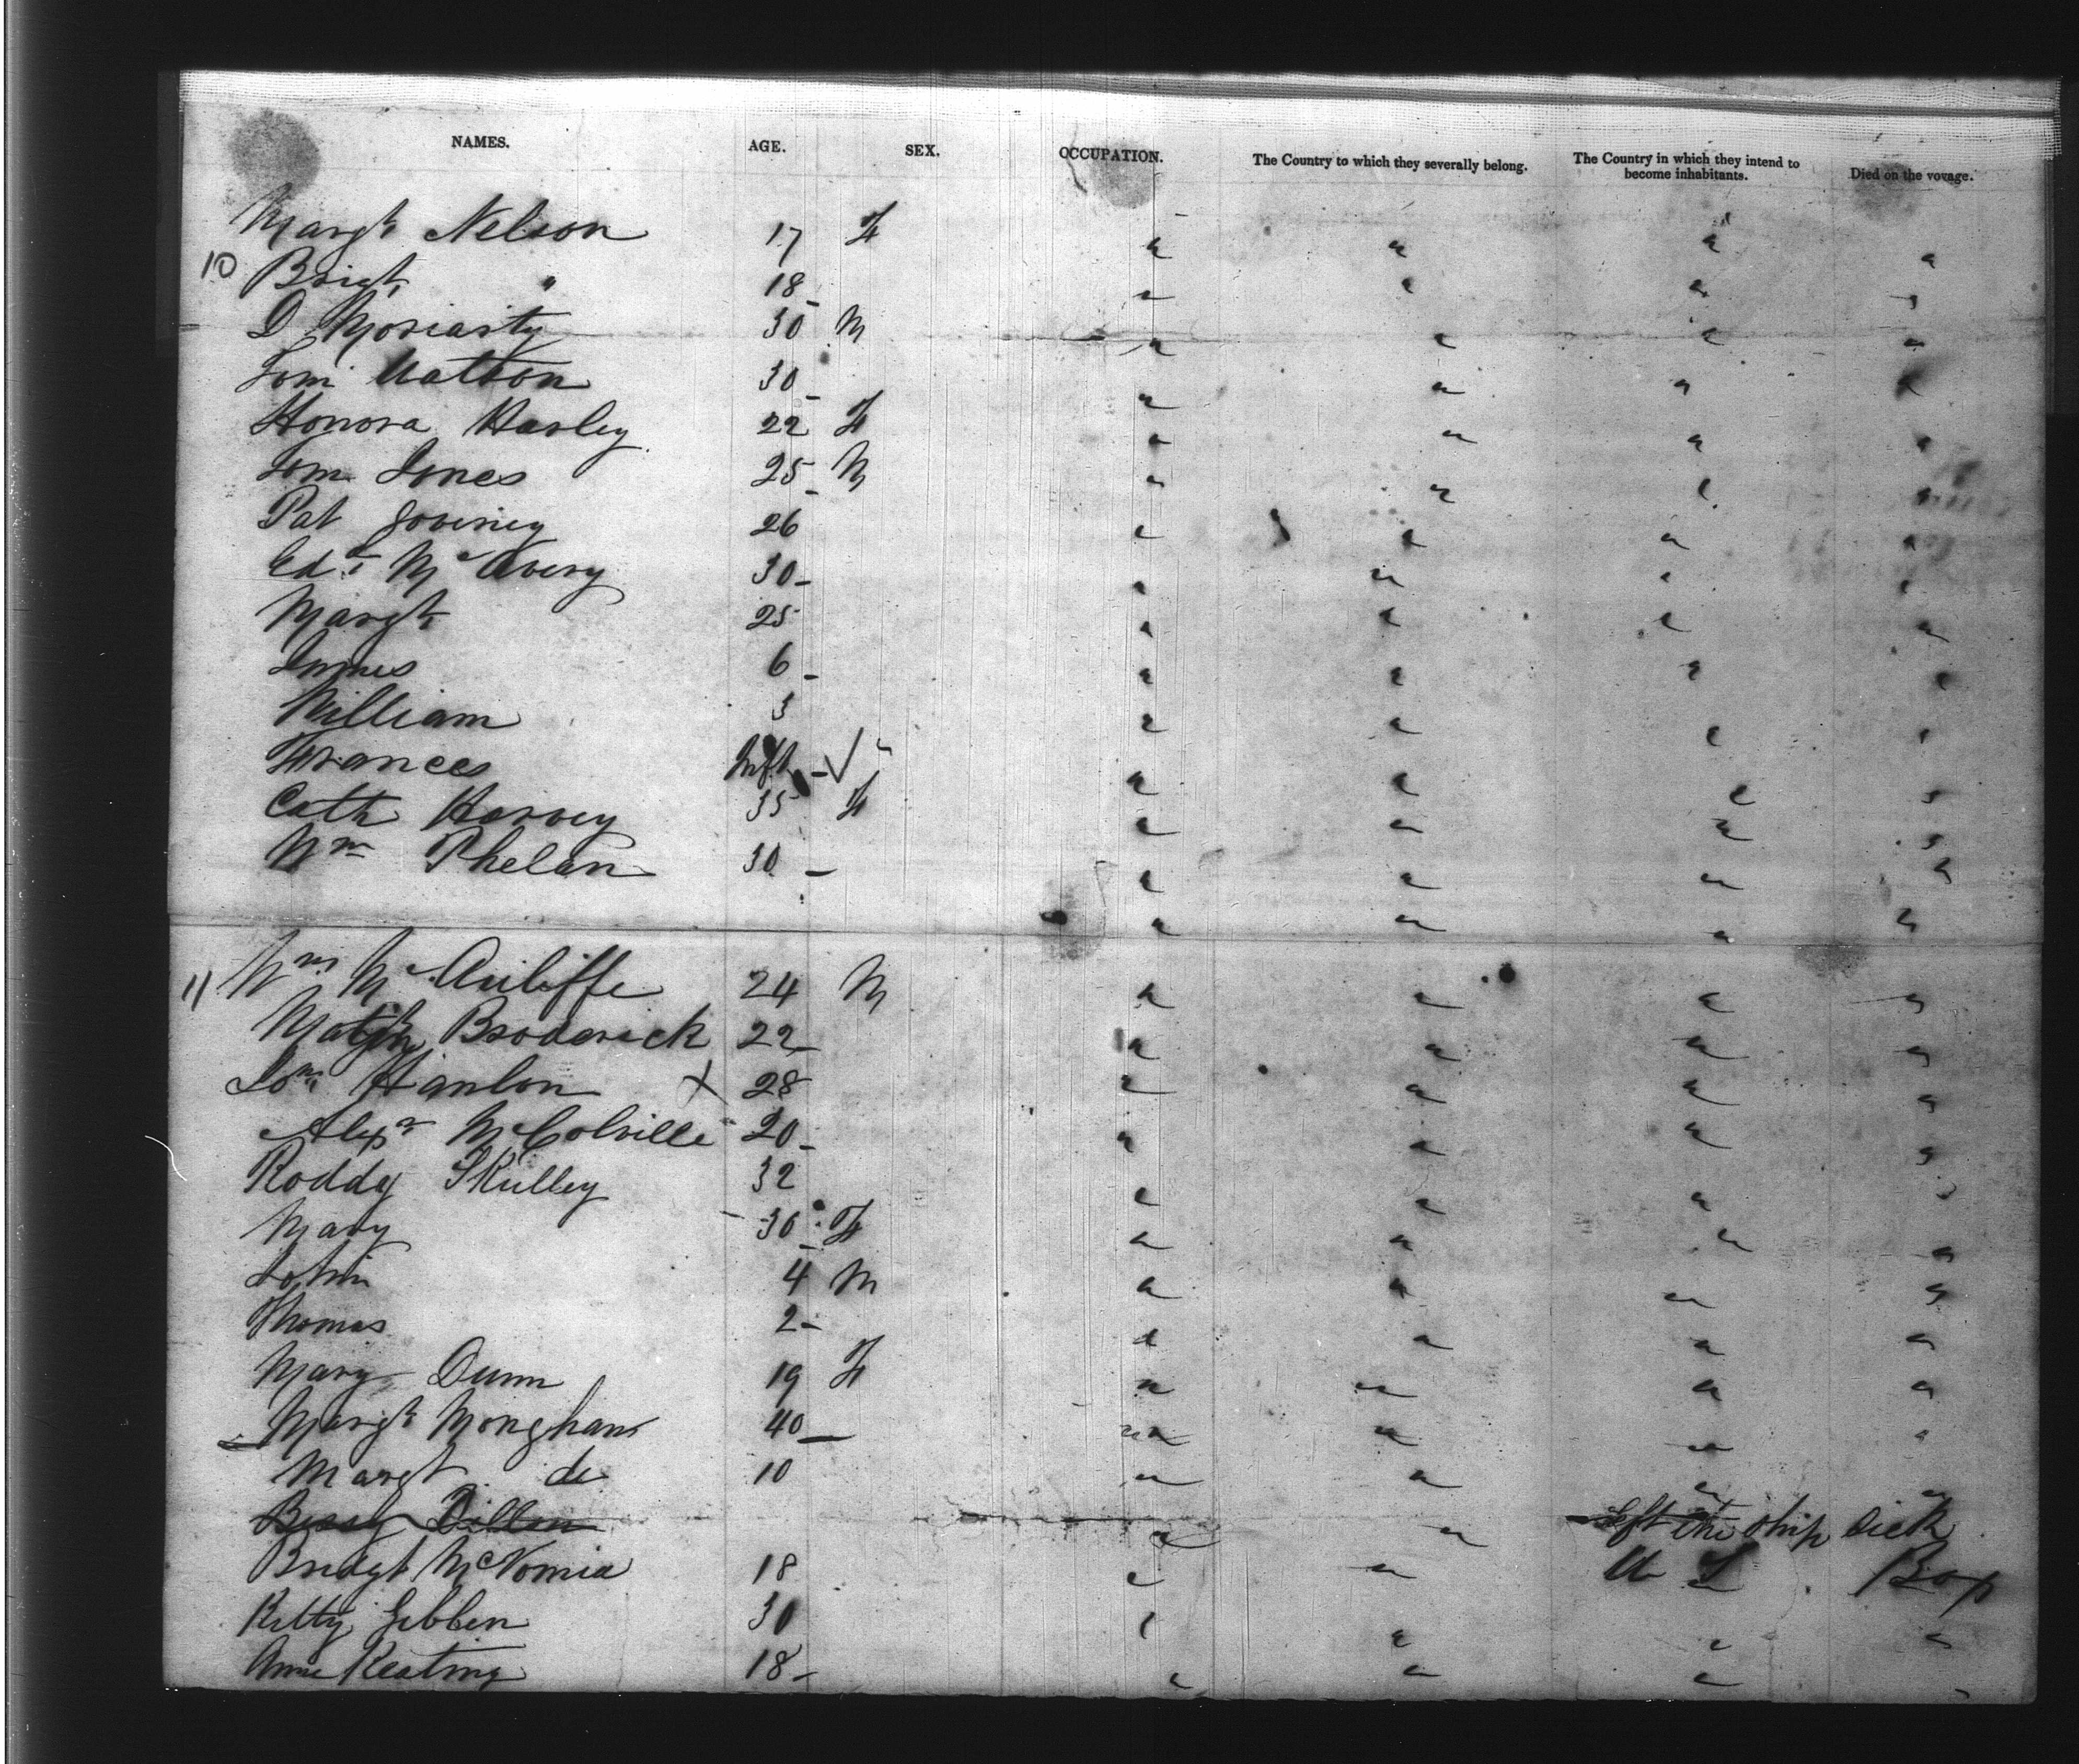 NAMES. AGE. SEX. OCCUPATION. The Country to which they severally belong. The Country in which they intend to become inhabitants. Died on the voyage.
Margt Nelson 17 F
10 Brigt " 18
D Moriarty 30 M
Tom Watson 30
Honora Harley 22 F
Tom Jones 25 M
Pat 26
Edd McAvery 30
Margt 25
James 6
William 3
Frances Inft
Cath Harvey 35 F
Wm Phelan 30
11 Wm McAuliffe 24 M
Broderick 22
Hanlon X 28
Alexr McColville 20
Roddy Skulley 32
Mary 30 F
John 4 M
Thomas 2
Mary Dunn 19 F
Margt Monghan 40
Margt do 10
Bessy Dillon Left the ship sick
Bridgt 18 U S
Kitty Gibben 30
Anne Keating 18